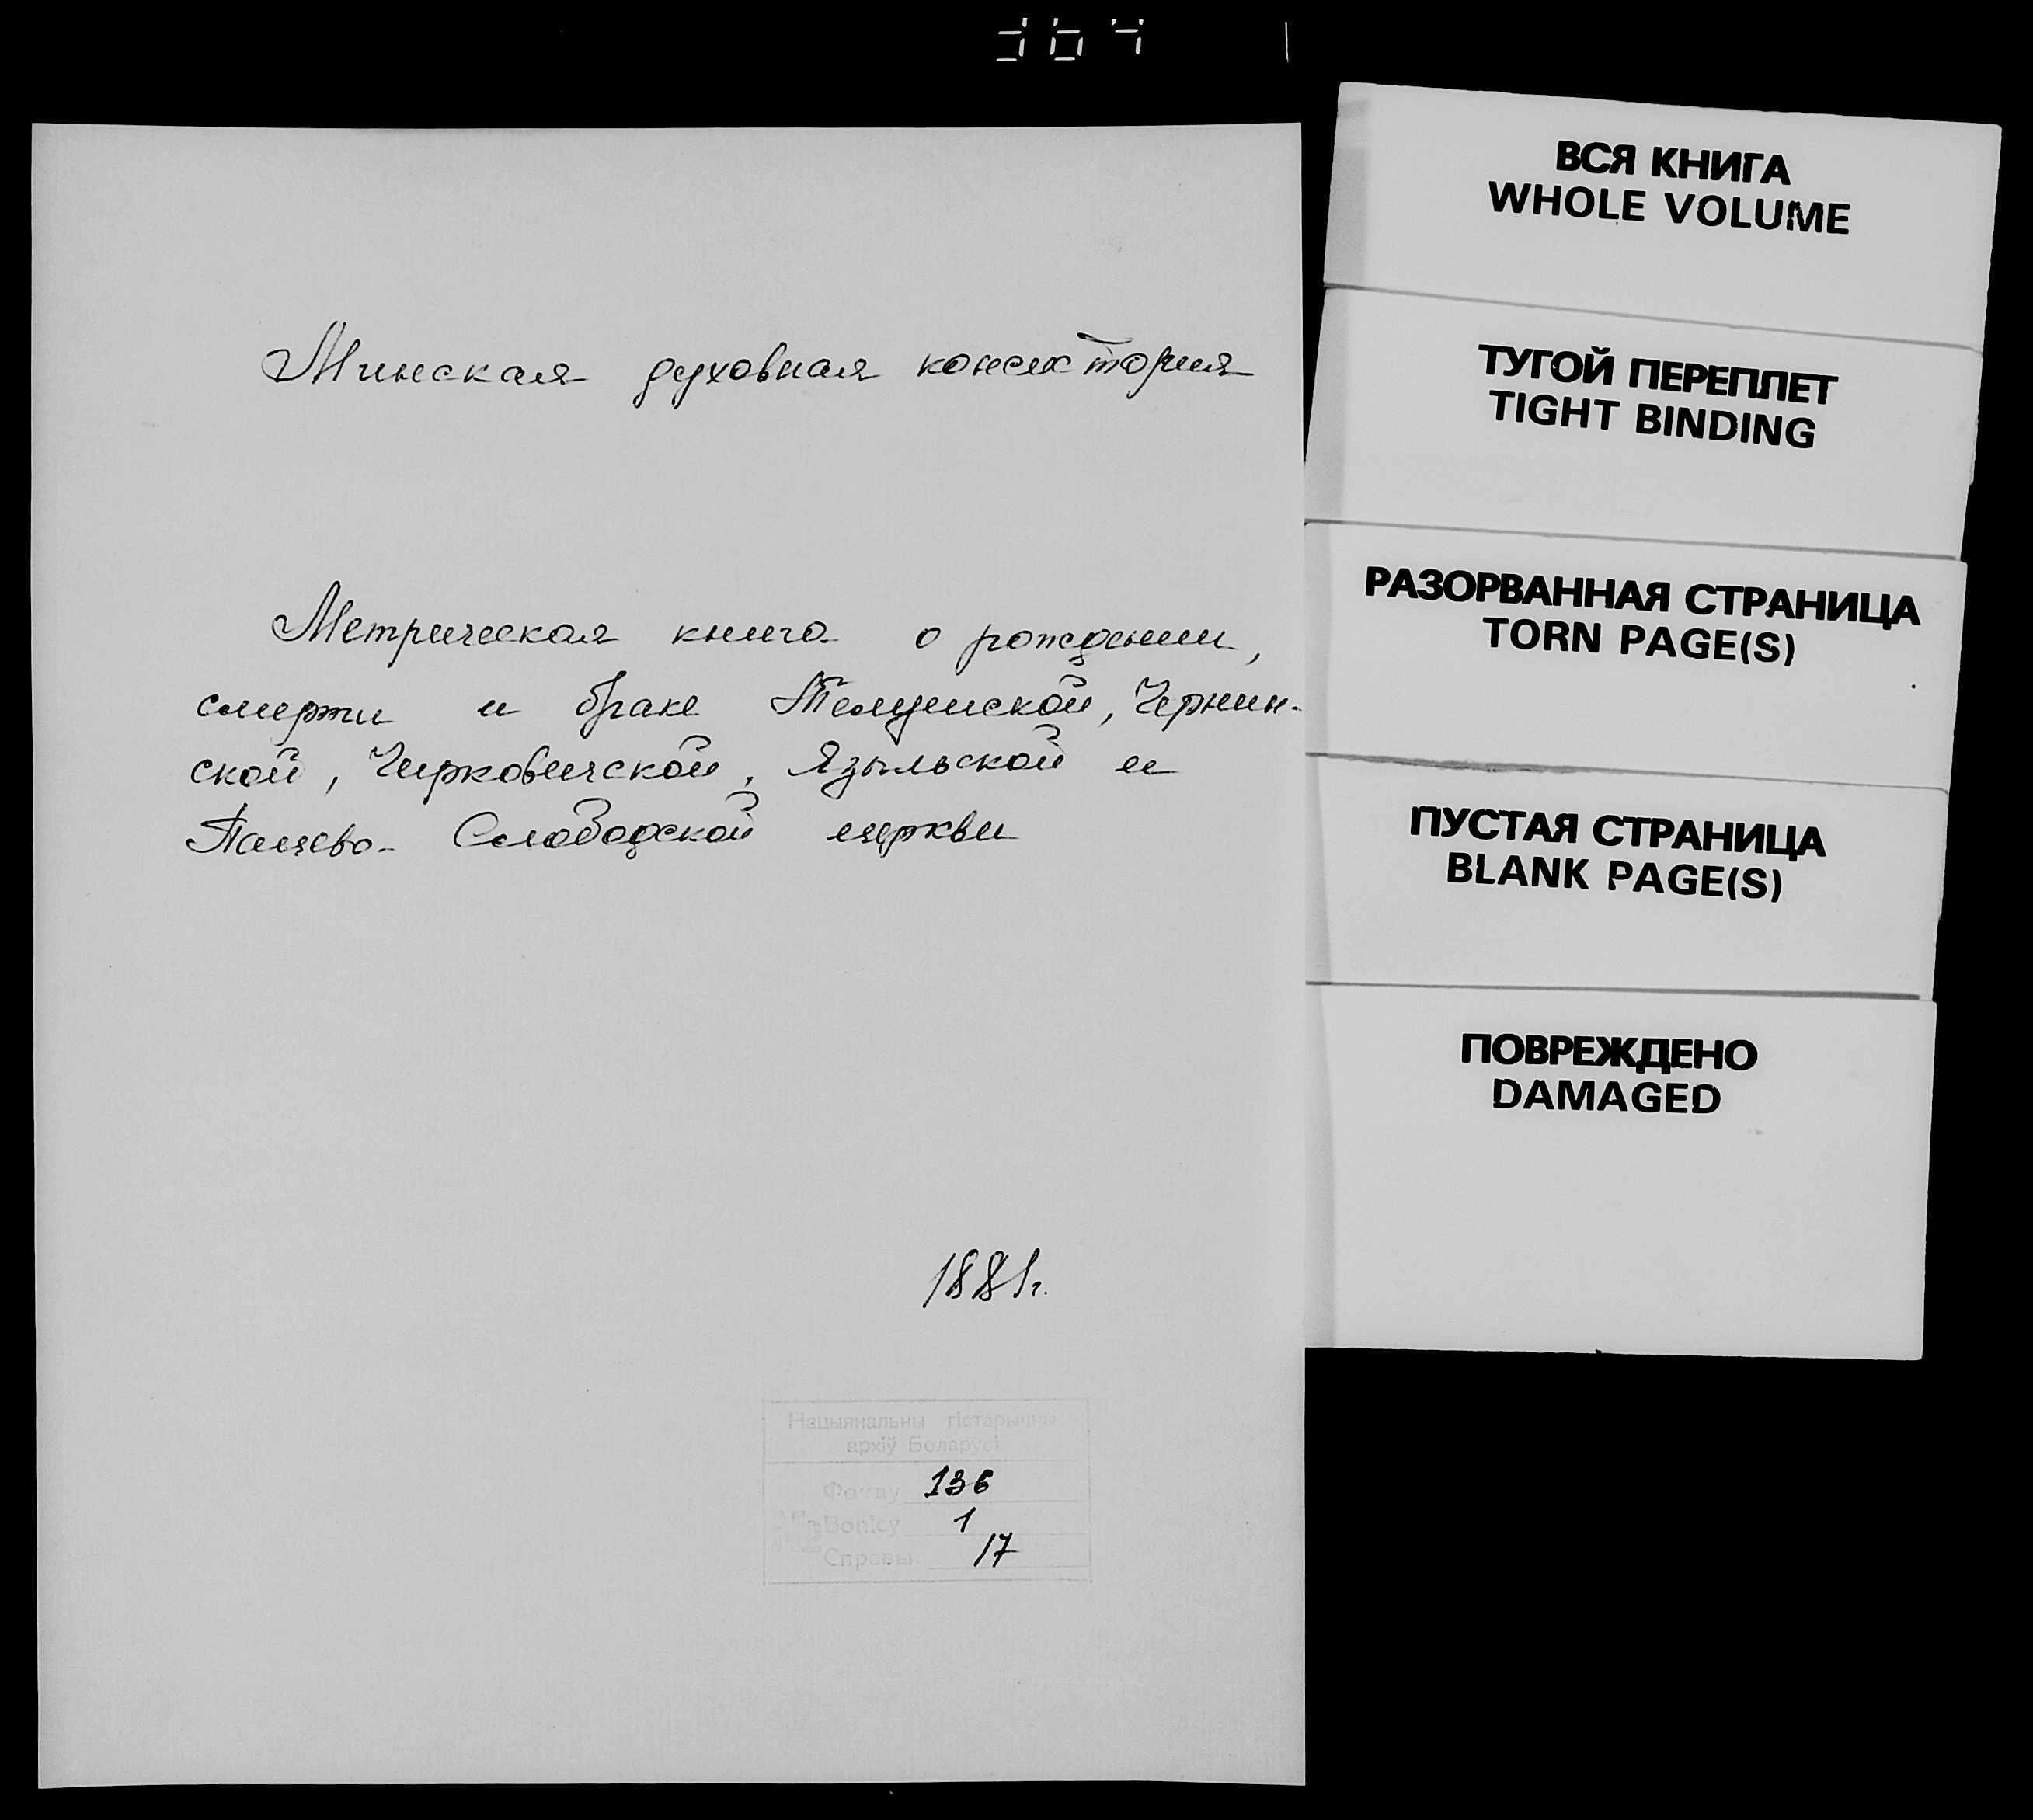 Минская духовная консистория
Метрическая книга о рождении,
смерти и браке Телушской, Чернин-
ской, Чирковичской, Языльской и
Пацево-Слободской церкви
1881г.
Нацыянальны гістарычны
архіў Беларусі
Фонду 136
Вопісу 1
Справы 17
ВСЯ КНИГА
WHOLE VOLUME
ТУГОЙ ПЕРЕПЛЕТ
TIGHT BINDING
РАЗОРВАННАЯ СТРАНИЦА
TORN PAGE(S)
ПУСТАЯ СТРАНИЦА
BLANK PAGE(S)
ПОВРЕЖДЕНО
DAMAGED